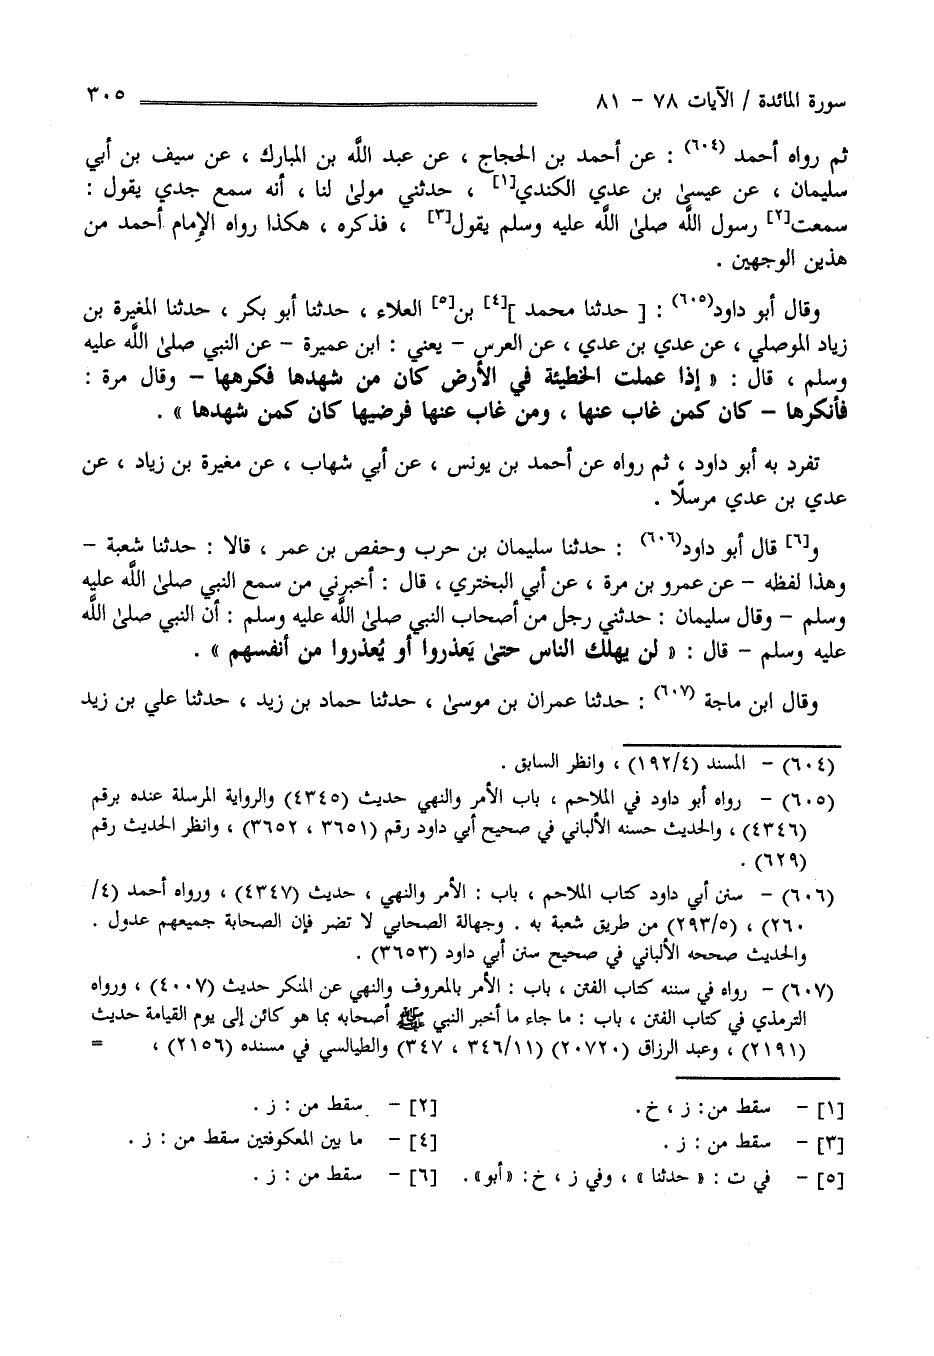 سورة المائدة / الآيات ٧٨ - ٨١ ٣٠٥
ثم رواه أحمد (٦٠٤) : عن أحمد بن الحجاج ، عن عبد اللَّه بن المبارك ، عن سيف بن أبي
سليمان ، عن عيسىٰ بن عدي الكندي[١] ، حدثني مولىٰ لنا ، أنه سمع جدي يقول :
سمعت[٢] رسول اللَّه صلىٰ اللَّه عليه وسلم يقول[٣] ، فذكره ، هكذا رواه الإِمام أحمد من
هذين الوجهين .
وقال أبو داود(٦٠٥) : [ حدثنا محمد ][٤] بن[٥] العلاء ، حدثنا أبو بكر ، حدثنا المغيرة بن
زياد الموصلي ، عن عدي بن عدي ، عن العرس – يعني : ابن عميرة – عن النبي صلىٰ اللَّه عليه
وسلم ، قال : « إذا عملت الخطيئة في الأرض كان من شهدها فكرهها – وقال مرة :
فأنكرها – كان كمن غاب عنها ، ومن غاب عنها فرضيها كان كمن شهدها » .
تفرد به أبو داود ، ثم رواه عن أحمد بن يونس ، عن أبي شهاب ، عن مغيرة بن زياد ، عن
عدي بن عدي مرسلًا .
و[٦] قال أبو داود(٦٠٦) : حدثنا سليمان بن حرب وحفص بن عمر ، قالا : حدثنا شعبة –
وهذا لفظه – عن عمرو بن مرة ، عن أبي البختري ، قال : أخبرني من سمع النبي صلىٰ اللَّه عليه
وسلم – وقال سليمان : حدثني رجل من أصحاب النبي صلىٰ اللَّه عليه وسلم : أن النبي صلىٰ اللَّه
عليه وسلم – قال : « لن يهلك الناس حتىٰ يَعذروا أو يُعذروا من أنفسهم » .
وقال ابن ماجة (٦٠٧) : حدثنا عمران بن موسىٰ ، حدثنا حماد بن زيد ، حدثنا علي بن زيد
(٦٠٤) – المسند (١٩٢/٤) ، وانظر السابق .
(٦٠٥) – رواه أبو داود في الملاحم ، باب الأمر والنهي حديث (٤٣٤٥) والرواية المرسلة عنده برقم
(٤٣٤٦) ، والحديث حسنه الألباني في صحيح أبي داود رقم (٣٦٥١ ، ٣٦٥٢) ، وانظر الحديث رقم
(٦٢٩) .
(٦٠٦) – سنن أبي داود كتاب الملاحم ، باب : الأمر والنهي ، حديث (٤٣٤٧) ، ورواه أحمد (٤/
٢٦٠) ، (٢٩٣/٥) من طريق شعبة به . وجهالة الصحابي لا تضر فإن الصحابة جميعهم عدول .
والحديث صححه الألباني في صحيح سنن أبي داود (٣٦٥٣) .
(٦٠٧) – رواه في سننه كتاب الفتن ، باب : الأمر بالمعروف والنهي عن المنكر حديث (٤٠٠٧) ، ورواه
الترمذي في كتاب الفتن ، باب : ما جاء ما أخبر النبي ﷺ أصحابه بما هو كائن إلى يوم القيامة حديث
(٢١٩١) ، وعبد الرزاق (٢٠٧٢٠) (٣٤٦/١١ ، ٣٤٧) والطيالسي في مسنده (٢١٥٦) ، =
[١] – سقط من: ز ، خ. [٢] – سقط من : ز .
[٣] – سقط من : ز . [٤] – ما بين المعكوفتين سقط من : ز .
[٥] – في ت : « حدثنا » ، وفي ز ، خ: «أبو». [٦] – سقط من : ز .